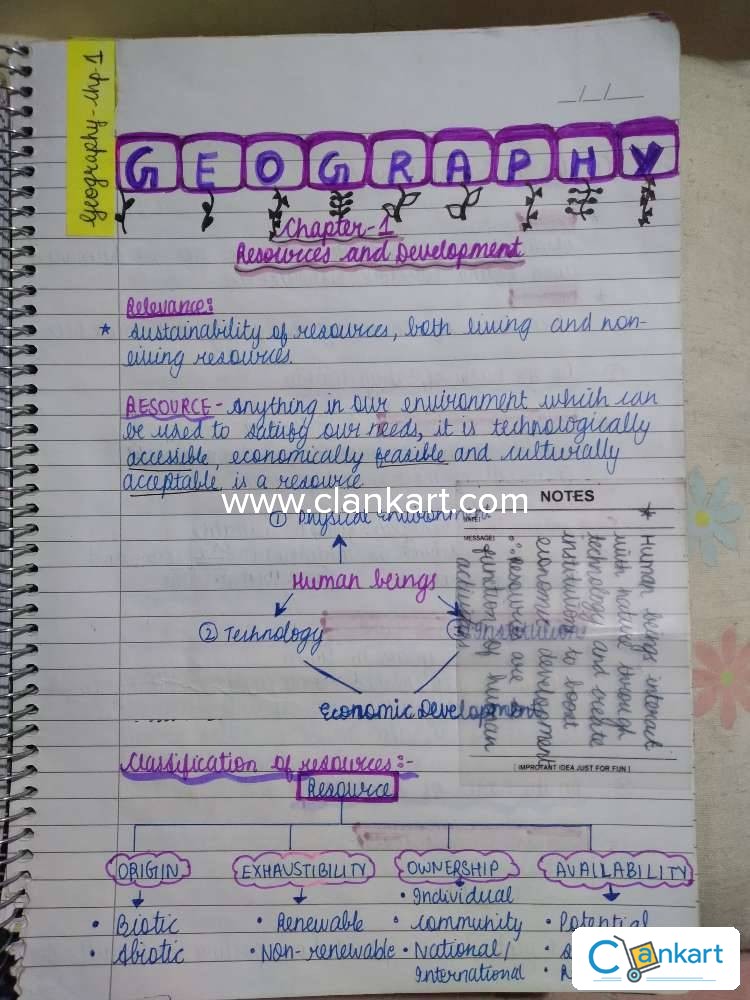 Geography-chp-1
_/_/_
GEOGRAPHY
Chapter-1
Resources and Development
Relevance:
* Sustainability of resources, both living and non-
living resources.
RESOURCE - Anything in our environment which can
be used to satisfy our needs, it is technologically
accessible, economically feasible and culturally
acceptable is a resource
www.clankart.com
① Physical environment
Human beings
② Technology
Institution
Economic Development
NOTES
DATE:
MESSAGE:
* Human beings interact
with nature through
technology and create
institutions to boost
economic development
∴ resources are the
function of human
activities
[ IMPROTANT IDEA JUST FOR FUN ]
Classification of resources:-
Resource
ORIGIN
• Biotic
• Abiotic
EXHAUSTIBILITY
• Renewable
• Non-renewable
OWNERSHIP
• Individual
• community
• National/
International
AVAILABILITY
• Potential
Clankart